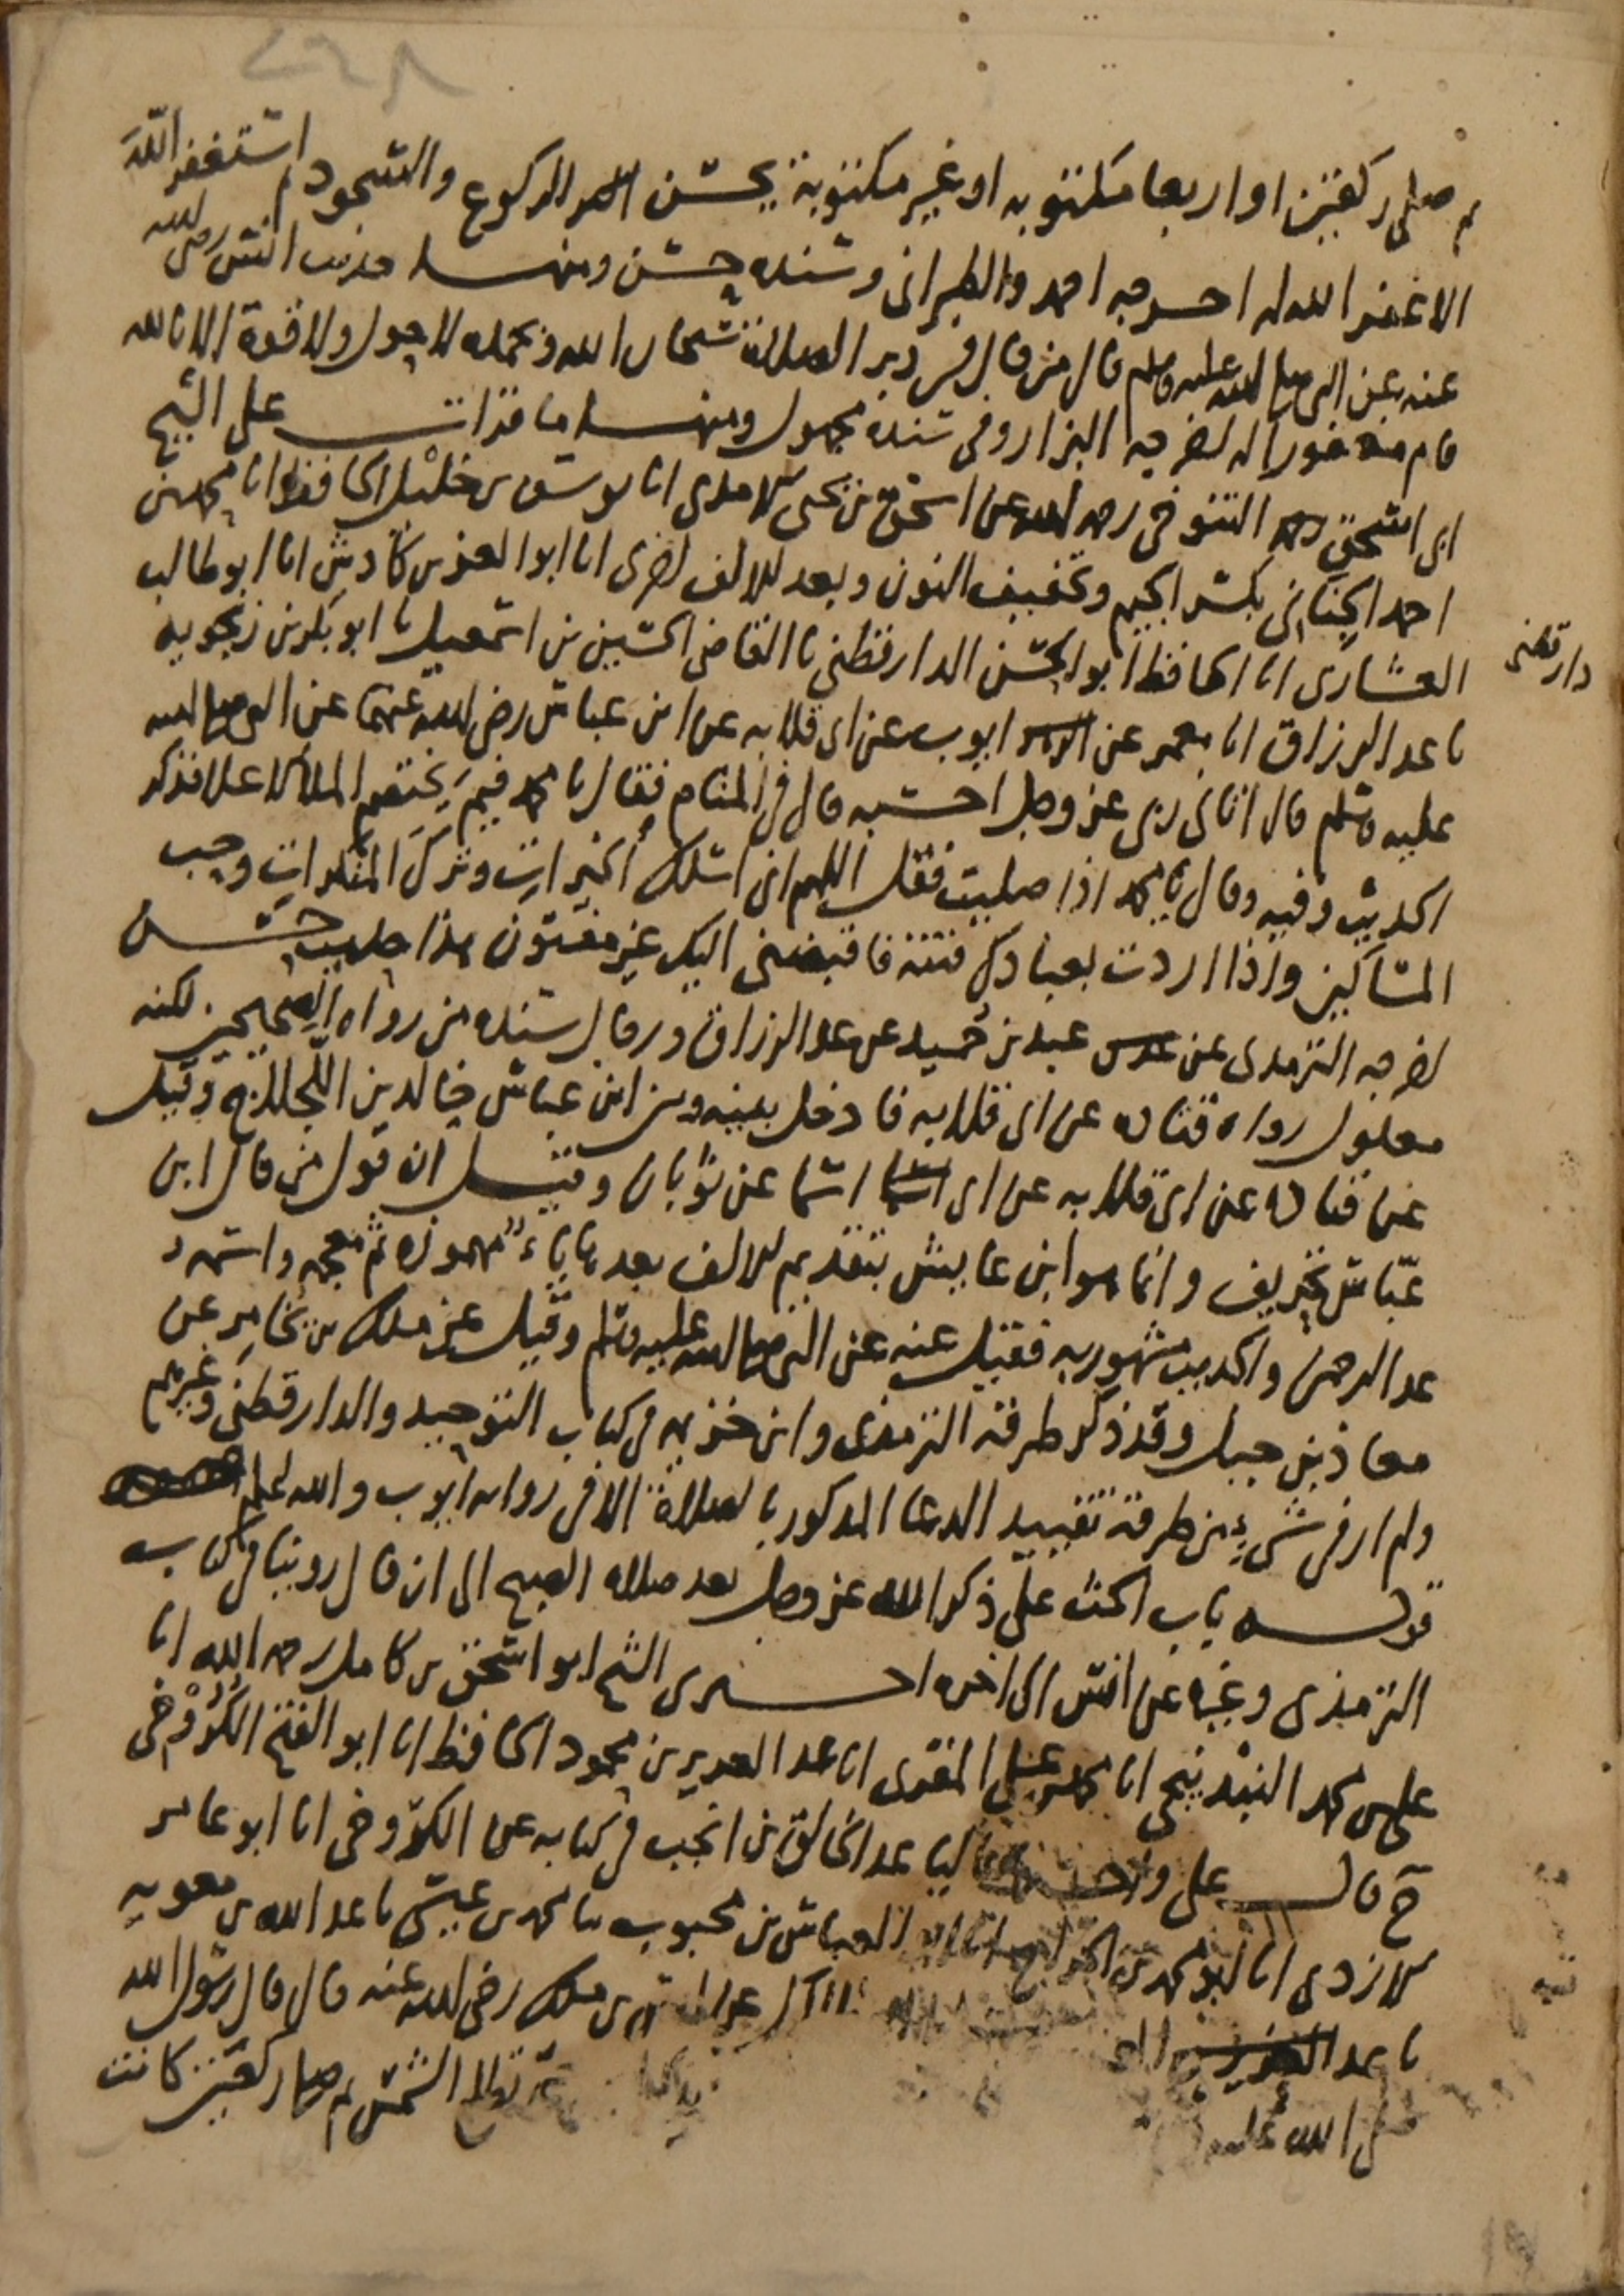 ٢٦٨
ثم صلى ركعتين او اربعا مكتوبه او غير مكتوبة يحسن الركوع والسجود ثم استغفر الله
الا غفر الله له اخرجه احمد والطبرانى وسنده حسن ومنها حديث انس رضى الله
عنه عن النبى صلى الله عليه وسلم قال من قال فى دبر الصلاة سبحان الله وبحمده لا حول ولا قوة الا بالله
قام مغفورا له اخرجه البزار وفى سنده مجهول ومنها ما قرات على الشيخ
ابى اسحق التنوخى رحمه الله عن اسحق بن يحيى الامدى انا يوسف بن خليل الحافظ انا محمد بن
احمد الجنانى بكسر الجيم وتخفيف النون وبعد الالف اخرى انا ابو العز بن كادش انا ابو طالب
العشارى انا الحافظ ابو الحسن الدارقطنى نا القاضى الحسين بن اسمعيل نا ابو بكر بن زنجويه
دارقطنى
نا عبد الرزاق انا معمر عن ايوب عن ابى قلابه عن ابن عباس رضى الله عنهما عن النبى صلى الله
عليه وسلم قال اتانى ربى عز وجل احسبه قال فى المنام فقال يا محمد فيم يختصم الملا الاعلا فذكر
الحديث وفيه وقال يا محمد اذا صليت فقل اللهم انى اسلك الخيرات وترك المنكرات وحب
المساكين واذا اردت بعبادك فتنة فاقبضنى اليك غير مفتون هذا حديث حسن
اخرجه الترمذى عن عبد بن حميد عن عبد الرزاق ورجال سنده من رواه الصحيحين لكنه
معلول رواه قتاده عن ابى قلابه فادخل بينه وبين ابن عباس خالد بن اللجلاج وقيل
عن قتاده عن ابى قلابه عن ابى اسما عن ثوبان وقيل ان قول من قال ابن
عبّاس تحريف وانما هو ابن عايش بتقديم الالف بعدها ياء مهموزه ثم معجمه واسمه
عبد الرحمن والحديث مشهور به فقيل عنه عن النبى صلى الله عليه وسلم وقيل عن ملك بن يخامر عن
معاذ بن جبل وقد ذكر طرقه الترمذى وابن خزيمه فى كتاب التوحيد والدارقطنى وغيرهم
ولم ار فى شىء من طرقه تقييد الدعا المذكور بالصلاة الا فى روايه ايوب والله اعلم
قوله باب الحث على ذكر الله عز وجل بعد صلاه الصبح الى ان قال روينا فى كتاب
الترمذى وغيره عن انس الى اخره اخبرنى الشيخ ابو اسحق بن كامل رحمه الله انا
على بن محمد البندنيجى انا محمد بن على المقرى انا عبد العزيز بن محمود الحافظ انا ابو الفتح الكروخى
ح قال على و عاليا عبد الخالق بن انجب فى كتابه عن الكروخى انا ابو عامر
الازدى انا ابو محمد بن الجراح انا ابو العباس بن محبوب نا محمد بن عيسى نا عبد الله بن معويه
نا عبد العزيز بن ملك رضى الله عنه قال قال رسول الله
صلى الله عليه تطلع الشمس ثم صلى ركعتين كانت